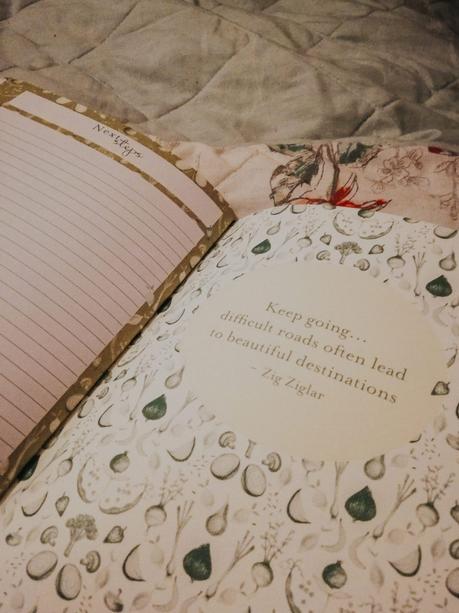 Next
steps
Keep going...
difficult roads often lead
to beautiful destinations
- Zig Ziglar